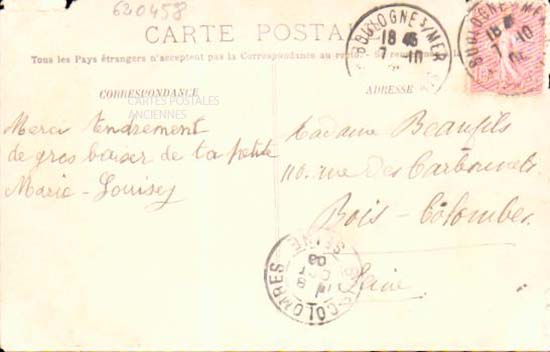 620458
CARTE POSTALE
Tous les Pays étrangers n'acceptent pas la Correspondance au
CORRESPONDANCE
ADRESSE
CARTES POSTALES
ANCIENNES
Merci tendrement
de gros baiser de ta petite
Marie-Louise
Madame Beaufils
110. rue des Carbonnets
Bois-Colombes
Seine
BOULOGNE S/MER
18 45
7-10
BOULOGNE S/MER
18
7-10
BOIS-COLOMBES
SEINE